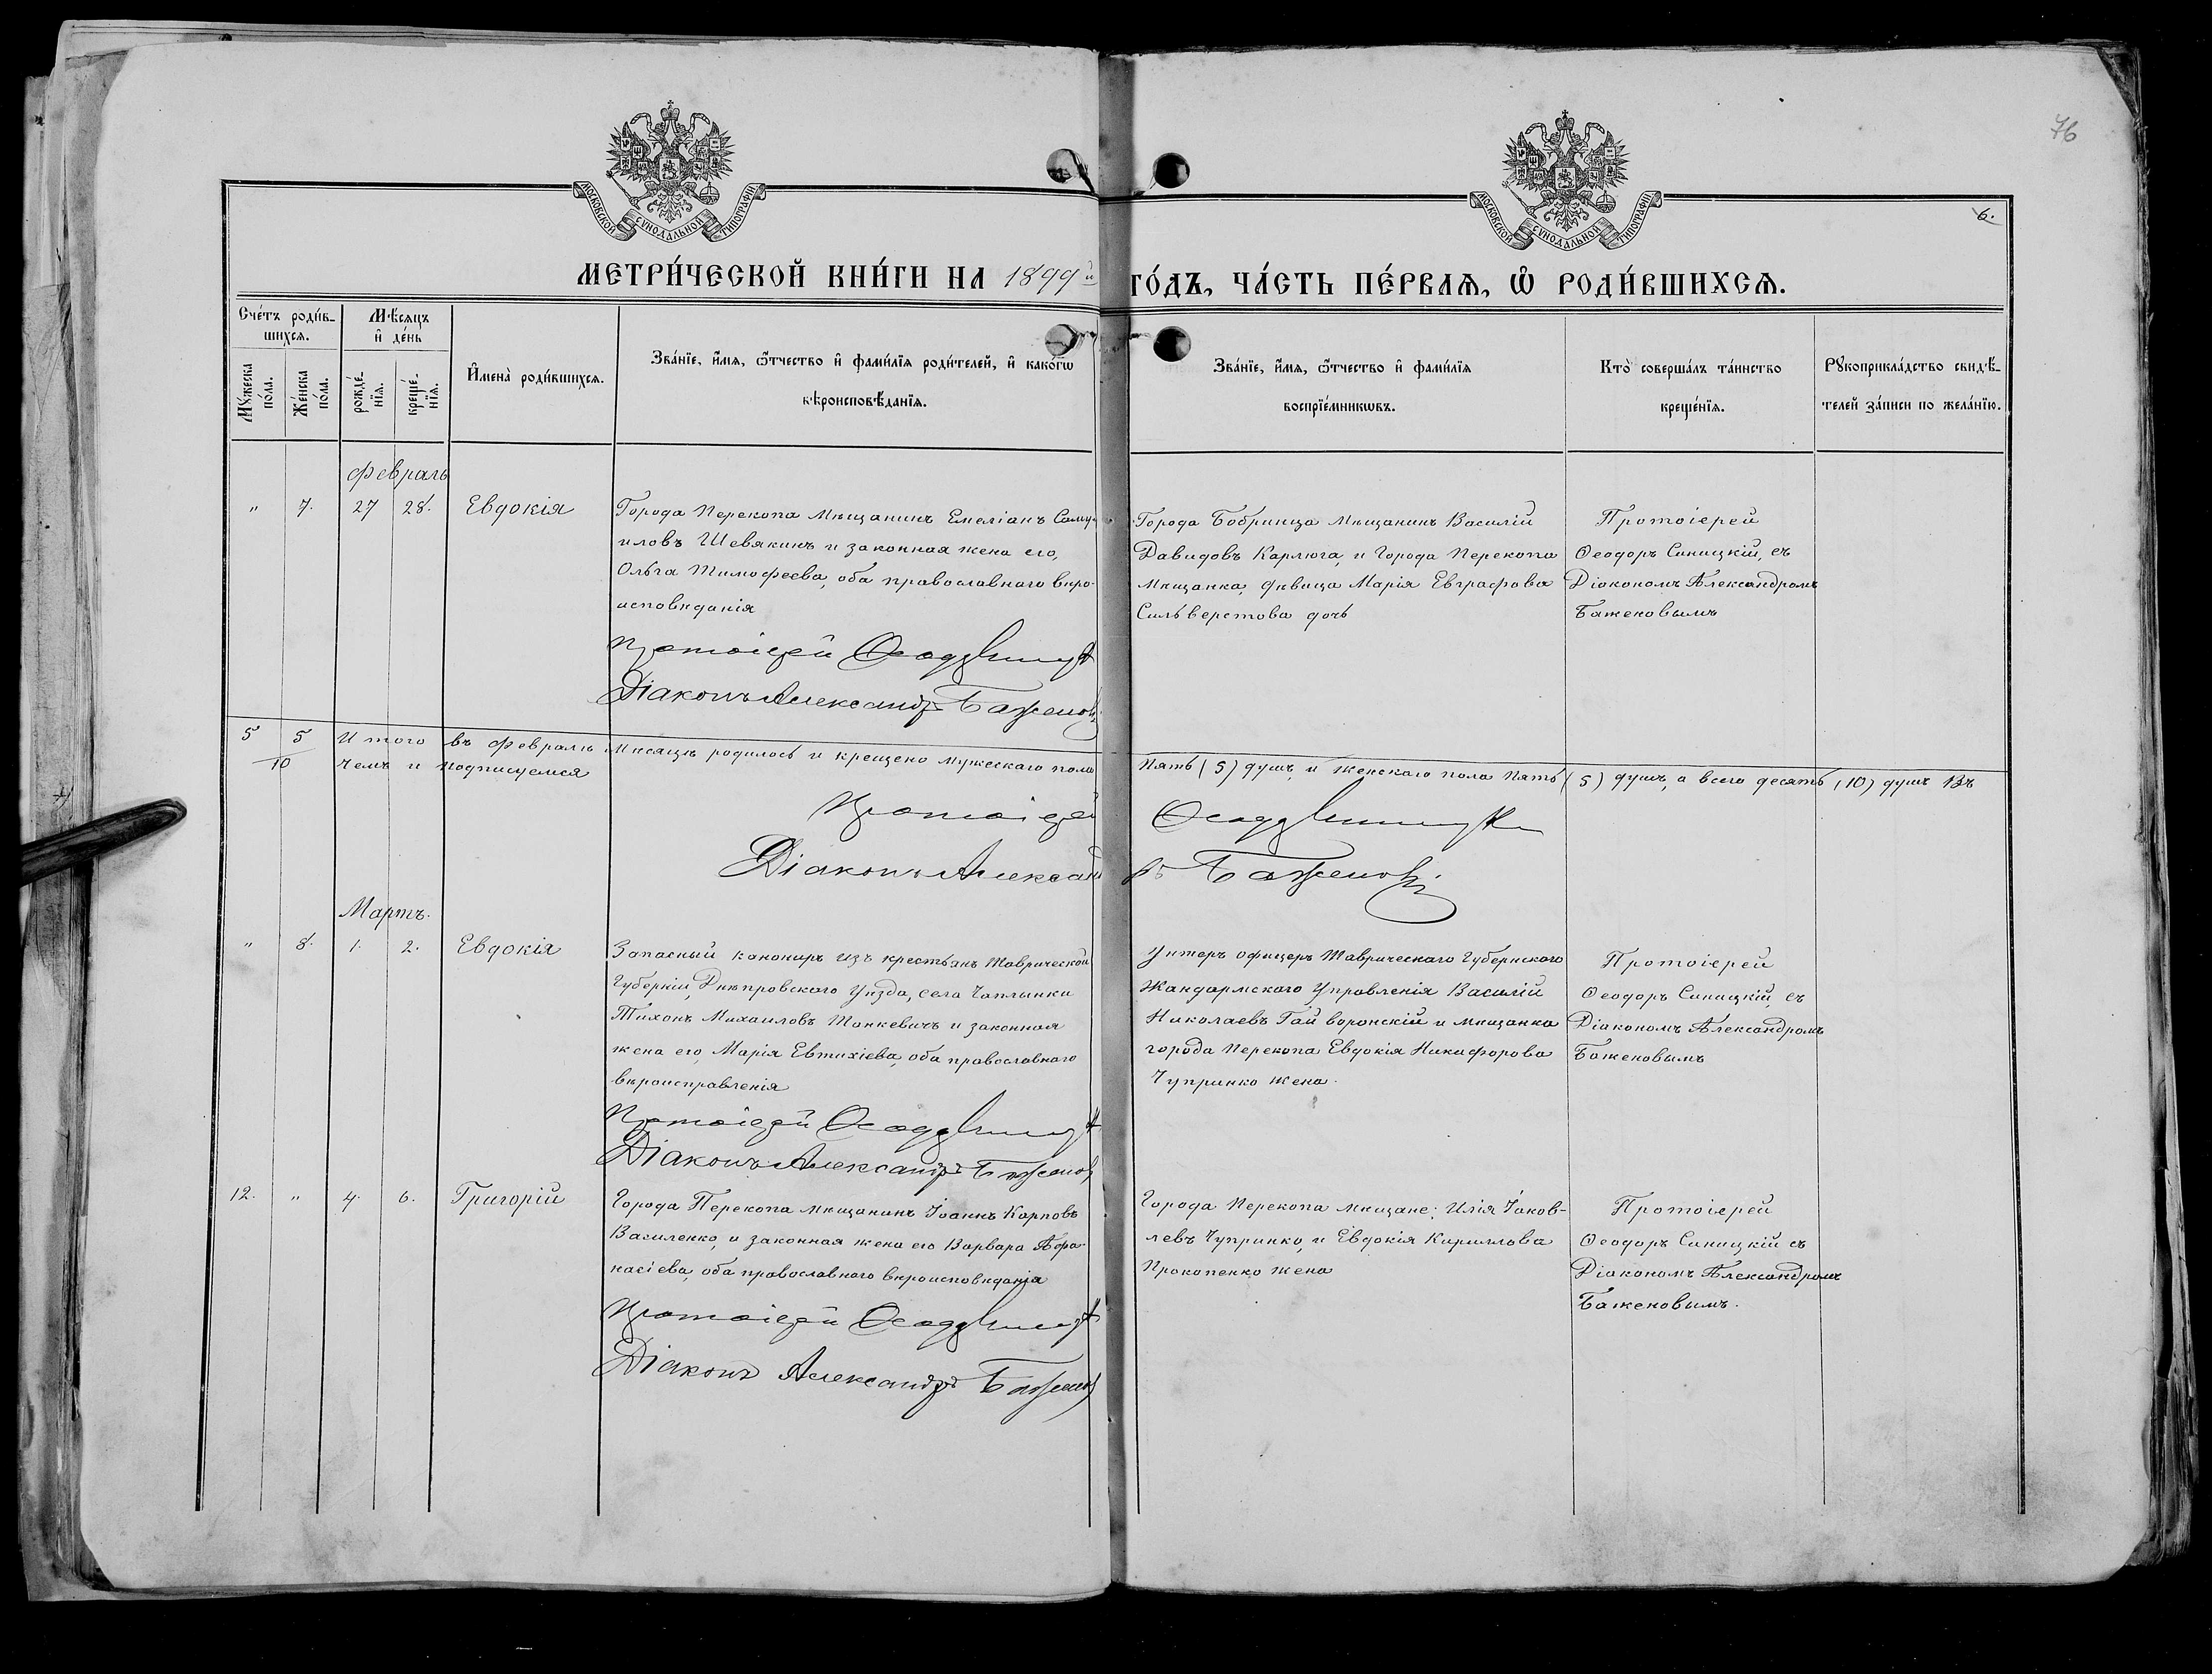 76
МОСКОВСКОЙ СѴНОДАЛЬНОЙ ТИПОГРАФІИ
МОСКОВСКОЙ СѴНОДАЛЬНОЙ ТИПОГРАФІИ
6.
МЕТРИ́ЧЕСКОЙ КНИ́ГИ НА 1899й ГО́ДЪ, ЧА́СТЬ ПЕ́РВАѦ, Ѡ҆ РОДИ́ВШИХСѦ.
Сче́тъ роди́в-
шихсѧ.
Мѣ́сѧцъ
и҆ де́нь
Мꙋ́жеска
по́ла.
Же́нска
по́ла.
рожде́-
нїѧ.
креще́-
нїѧ.
И҆мена̀ роди́вшихсѧ.
Зва́нїе, и҆́мѧ, ѻ҆́тчество и҆ фами́лїѧ роди́телей, и҆ како́гѡ
вѣроисповѣ́данїѧ.
Зва́нїе, и҆́мѧ, ѻ҆́тчество и҆ фами́лїѧ
воспрїе́мникѡвъ.
Кто̀ соверша́лъ та́инство
креще́нїѧ.
Рꙋкоприкла́дство свидѣ́-
телей за́писи по жела́нїю.
Февраль
" 7. 27 28. Евдокія
Города Перекопа Мѣщанинъ Емеліанъ Саму-
иловъ Шевякинъ и законная жена его,
Ольга Тимофеева, оба православнаго вѣро-
исповѣданія
Протоіерей Ѳеодоръ Синицкій
Діаконъ Александръ Баженовъ
Города Бобринца Мѣщанинъ Василій
Давидовъ Карлюга, и Города Перекопа
Мѣщанка, дѣвица Марія Евграфова
Сильверстова дочь
Протоіерей
Ѳеодоръ Синицкій, съ
Діакономъ Александромъ
Баженовымъ
5 5 Итого въ Февралѣ Мѣсяцѣ родилось и крещено мужескаго пола Пять (5) душъ, и женскаго пола Пять (5) душъ, а всего десять (10) душъ Въ
10 чемъ и подписуемся
Протоіерей Ѳеодоръ Синицкій
Діаконъ Александръ Баженовъ
Мартъ.
" 8. 1. 2. Евдокія
Запасный канониръ изъ крестьянъ Таврической
Губерніи, Днѣпровскаго Уѣзда, села Чаплынки
Тихонъ Михаиловъ Танкевичъ и законная
жена его, Марія Евтихіева, оба православнаго
вѣроисправленія
Протоіерей Ѳеодоръ Синицкій
Діаконъ Александръ Баженовъ
Унтеръ офицеръ Таврическаго Губернскаго
Жандармскаго Управленія Василій
Николаевъ Гайворонскій и Мѣщанка
города Перекопа Евдокія Никифорова
Чупринко жена.
Протоіерей
Ѳеодоръ Синицкій, съ
Діакономъ Александромъ
Баженовымъ
12. " 4. 6. Григорій
Города Перекопа мѣщанинъ Іоаннъ Карповъ
Василенко, и законная жена его Варвара Афа-
насіева, оба православнаго вѣроисповѣданія
Протоіерей Ѳеодоръ Синицкій
Діаконъ Александръ Баженовъ
Города Перекопа мѣщане: Илія Іаков-
левъ Чупринко, и Евдокія Кириллова
Прокопенко жена
Протоіерей
Ѳеодоръ Синицкій съ
Діакономъ Александромъ
Баженовымъ.